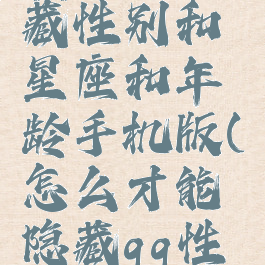 藏性别和
星座和年
龄手机版(
怎么才能
隐藏qq性